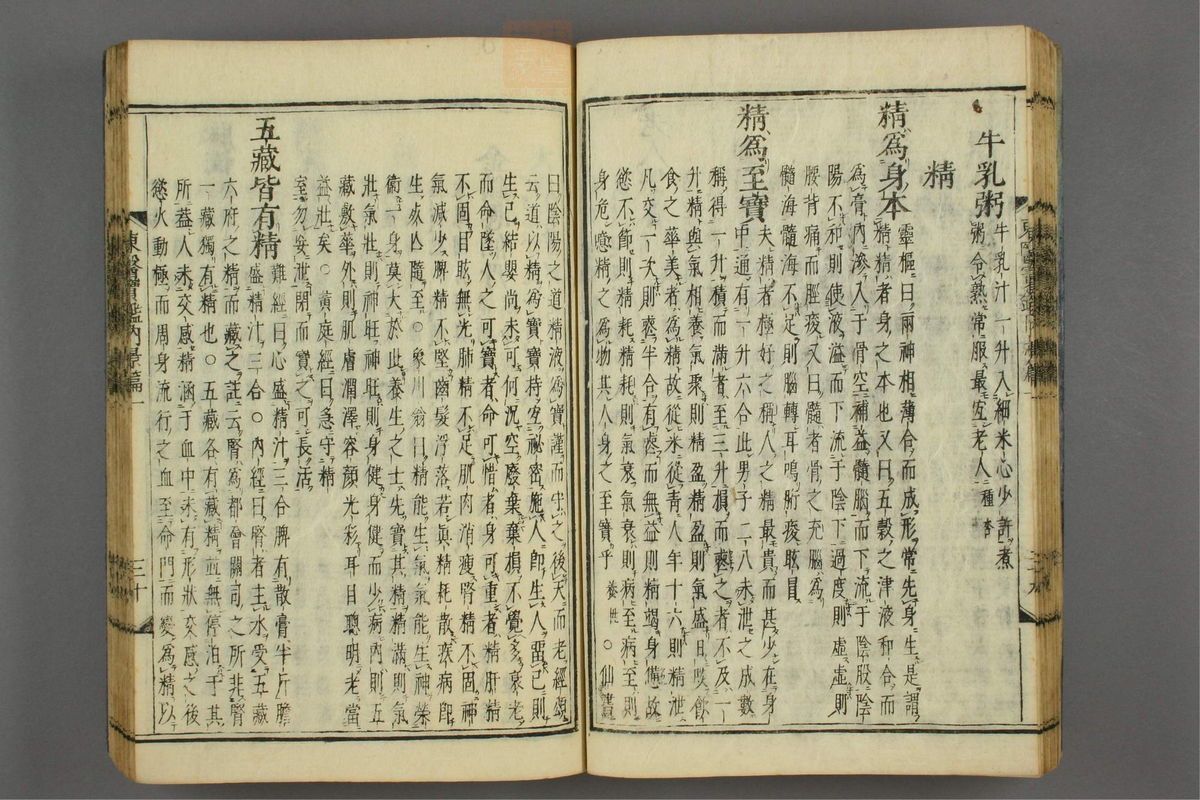 牛乳粥牛乳汁一升入細米心少許煮
粥令熟常服最宜老人種杏
精
精爲身本靈樞曰兩神相薄合而成形常先身生是謂
精精者身之本也又曰五穀之津液和合而
爲膏內滲入于骨空補益髓腦而下流于陰股陰
陽不和則使液溢而下流于陰下過度則虛虛則
腰背痛而脛痠又曰髓者骨之充腦爲
髓海髓海不足則腦轉耳鳴䯒痠眩冒
精爲至寶夫精者極好之稱人之精最貴而甚少在身
中通有一升六合此男子二八未泄之成數
稱得一升積而滿者至三升損而喪之者不及一
升精與氣相養氣聚則精盈精盈則氣盛日啖飮
食之華美者爲精故從米從靑人年十六則精泄
凡交一次則喪半合有喪而無益則精竭身憊故
慾不節則精耗精耗則氣衰氣衰則病至病至則
身危噫精之爲物其人身之至寶乎養性○仙書
曰陰陽之道精液爲寶謹而守之後天而老經頌
云道以精爲寶寶持宜祕密施人卽生人留己則
生己結嬰尙未可何況空廢棄棄損不覺多衰老
而命墜人之可寶者命可惜者身可重者精肝精
不固目眩無光肺精不足肌肉消瘦腎精不固神
氣減少脾精不堅齒髮浮落若眞精耗散疾病卽
生死亾隨至○象川翁曰精能生氣氣能生神榮
衛一身莫大於此養生之士先寶其精精滿則氣
壯氣壯則神旺神旺則身健身健而少病內則五
藏敷華外則肌膚潤澤容顏光彩耳目聰明老當
益壯矣○黃庭經曰急守精
室勿妄泄閉而寶之可長活
五藏皆有精難經曰心盛精汁三合脾有散膏半斤膽
盛精汁三合○內經曰腎者主水受五藏
六府之精而藏之註云腎爲都會關司之所非腎
一藏獨有精也○五藏各有藏精並無停泊于其
所蓋人未交感精涵于血中未有形狀交感之後
慾火動極而周身流行之血至命門而變爲精以
東醫寶鑑內景篇一
三十